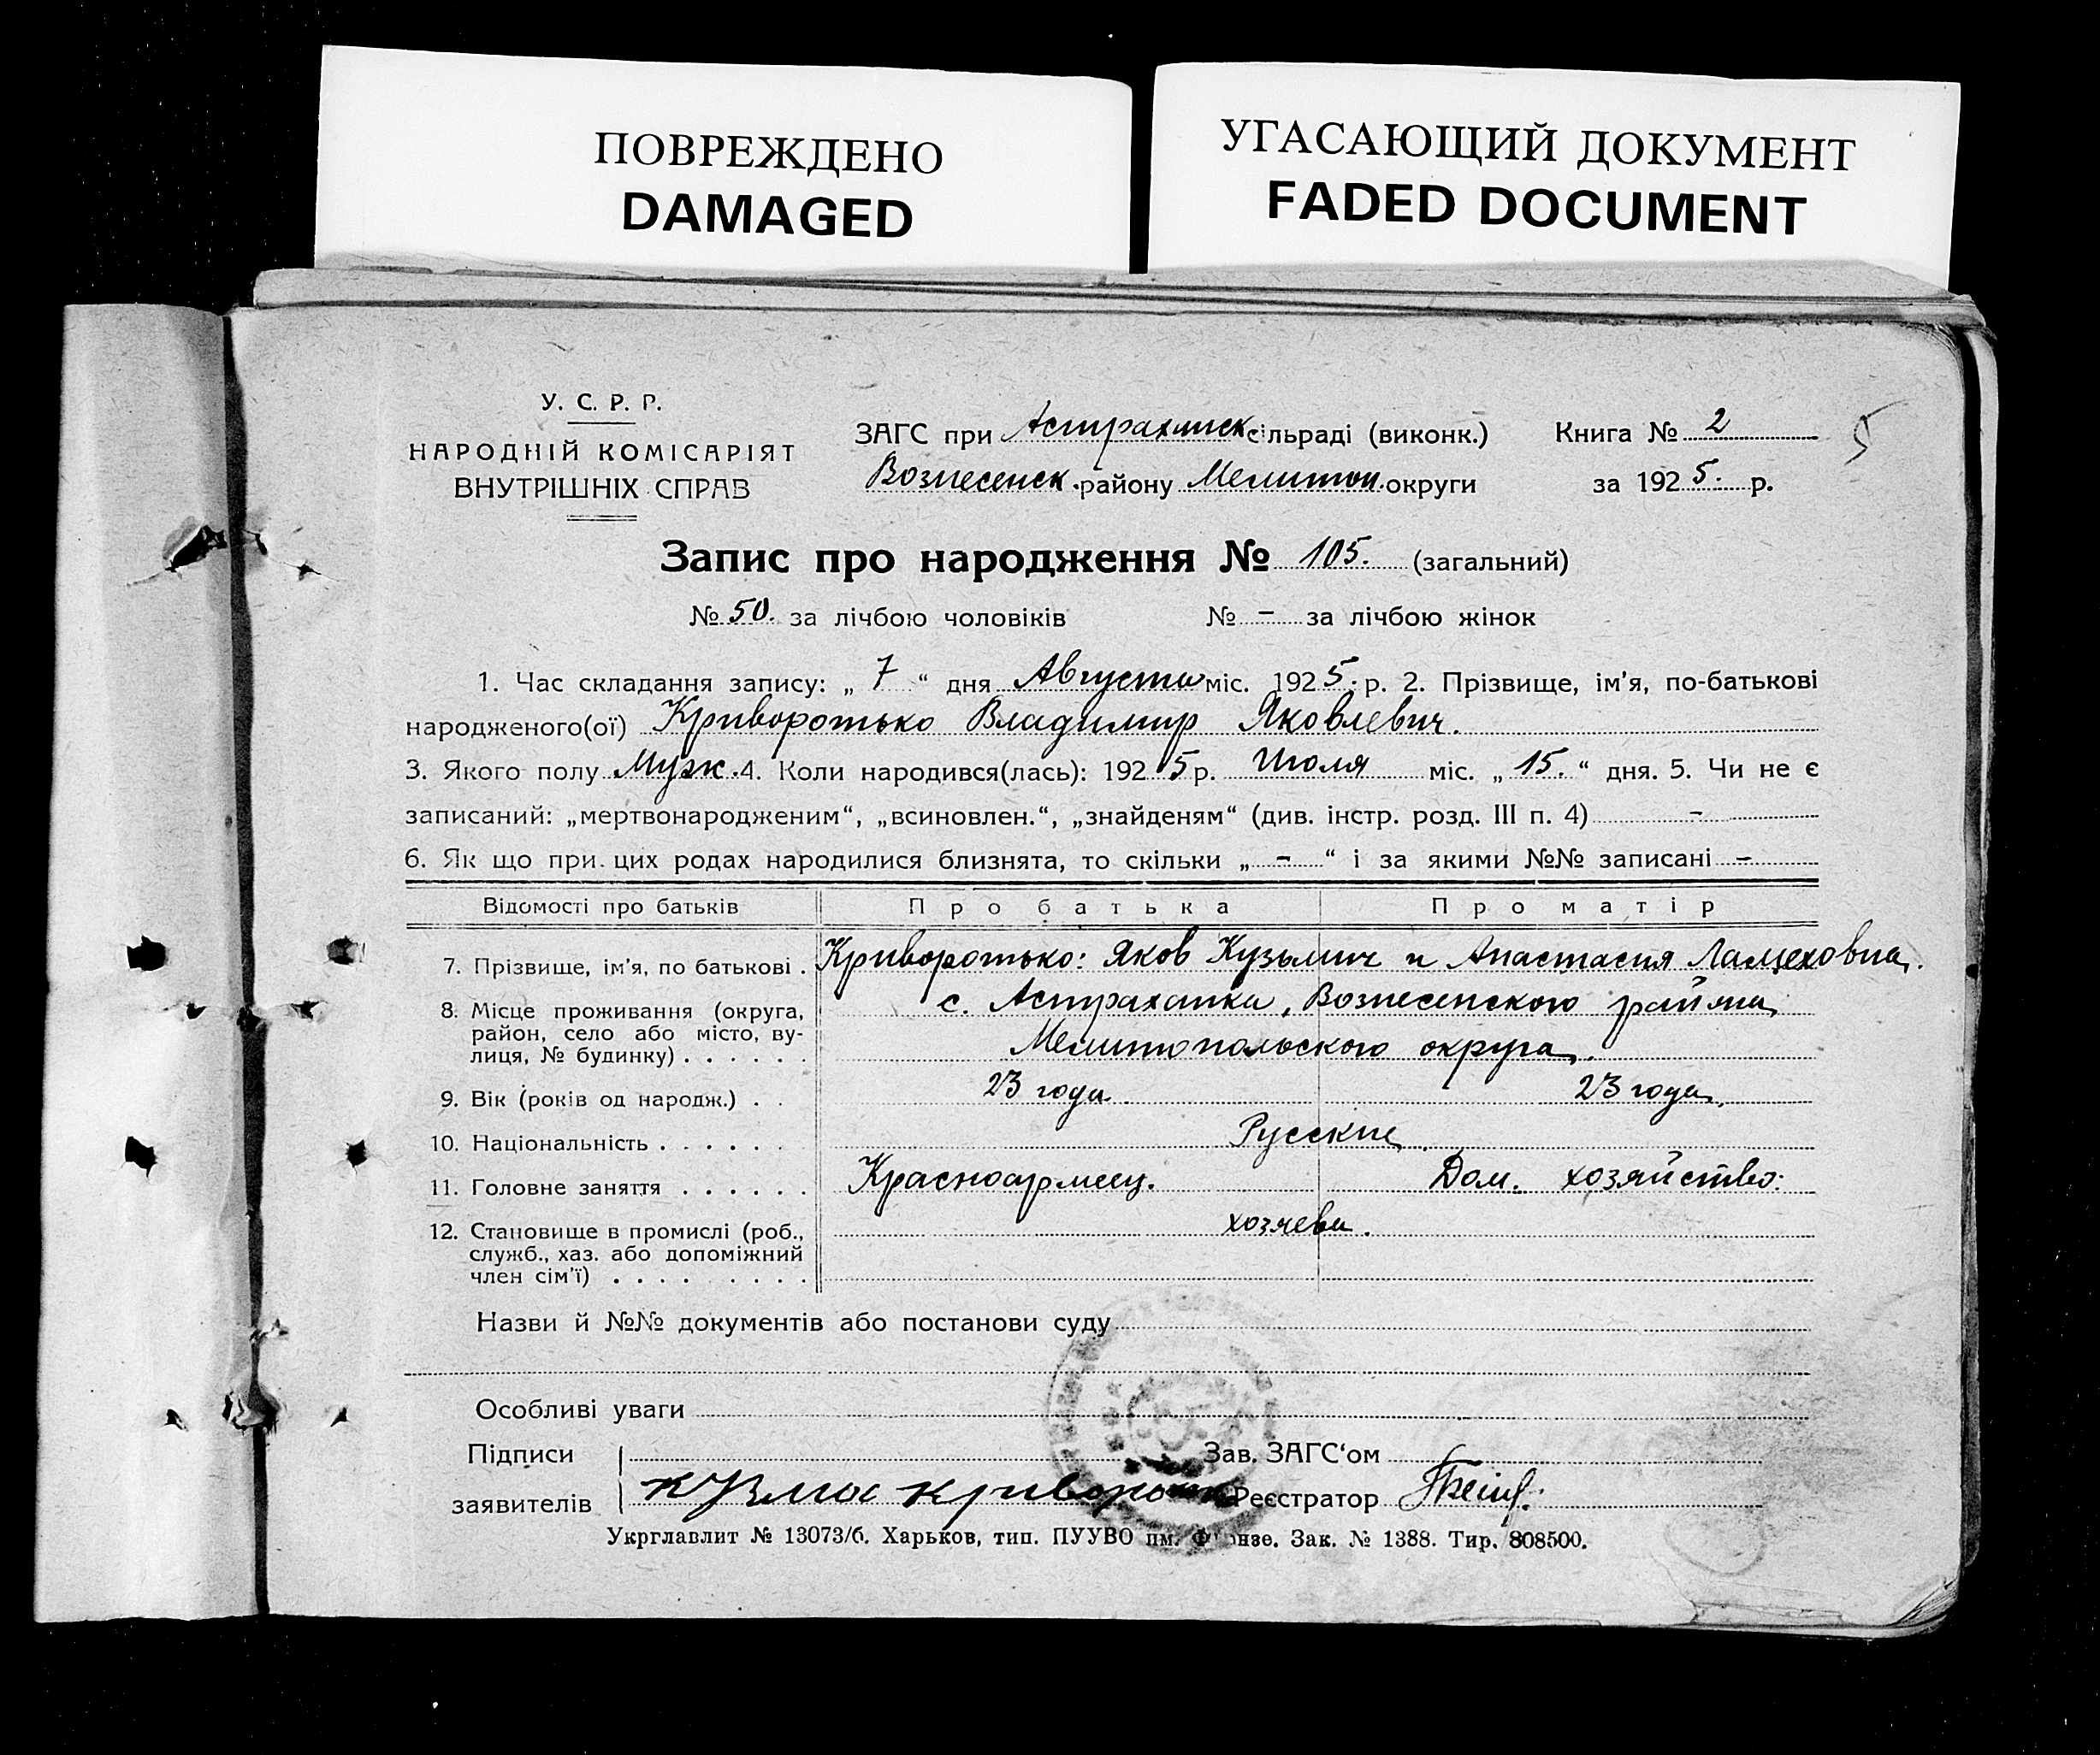 ПОВРЕЖДЕНО
DAMAGED
УГАСАЮЩИЙ ДОКУМЕНТ
FADED DOCUMENT
У. С. Р. Р.
НАРОДНІЙ КОМІСАРІЯТ
ВНУТРІШНІХ СПРАВ
ЗАГС при Астраханск сільраді (виконк.) Книга № 2
5
Вознесенск. району Мелитоп. округи за 1925. р.
Запис про народження № 105. (загальний)
№ 50. за лічбою чоловіків № - за лічбою жінок
1. Час складання запису: „ 7 “ дня Августа міс. 1925. р. 2. Прізвище, ім'я, по-батькові
народженого(ої) Криворотько Владимир Яковлевич.
3. Якого полу Муж. 4. Коли народився(лась): 1925 р. Июля міс. „ 15. “ дня. 5. Чи не є
записаний: „мертвонародженим“, „всиновлен.“, „знайденям“ (див. інстр. розд. III п. 4) -
6. Як що при цих родах народилися близнята, то скільки „ - “ і за якими №№ записані -
Відомості про батьків Про батька Про матір
7. Прізвище, ім'я, по батькові . Криворотько: Яков Кузьмич и Анастасия
8. Місце проживання (округа, с. Астраханка, Вознесенского района,
район, село або місто, ву-
лиця, № будинку) . . . . . . Мелитопольского округа.
9. Вік (років од народж.) . . 23 года 23 года.
10. Національність . . . . . . Русские
11. Головне заняття . . . . . . Красноармеец. Дом. хозяйство:
12. Становище в промислі (роб., хозяева.
служб., хаз. або допоміжний
член сім'ї) . . . . . . . . .
Назви й №№ документів або постанови суду
Особливі уваги
Підписи Зав. ЗАГС‘ом
заявителів Кузма Реєстратор
Укрглавлит № 13073/б. Харьков, тип. ПУУВО им. Фрунзе. Зак. № 1388. Тир. 808500.